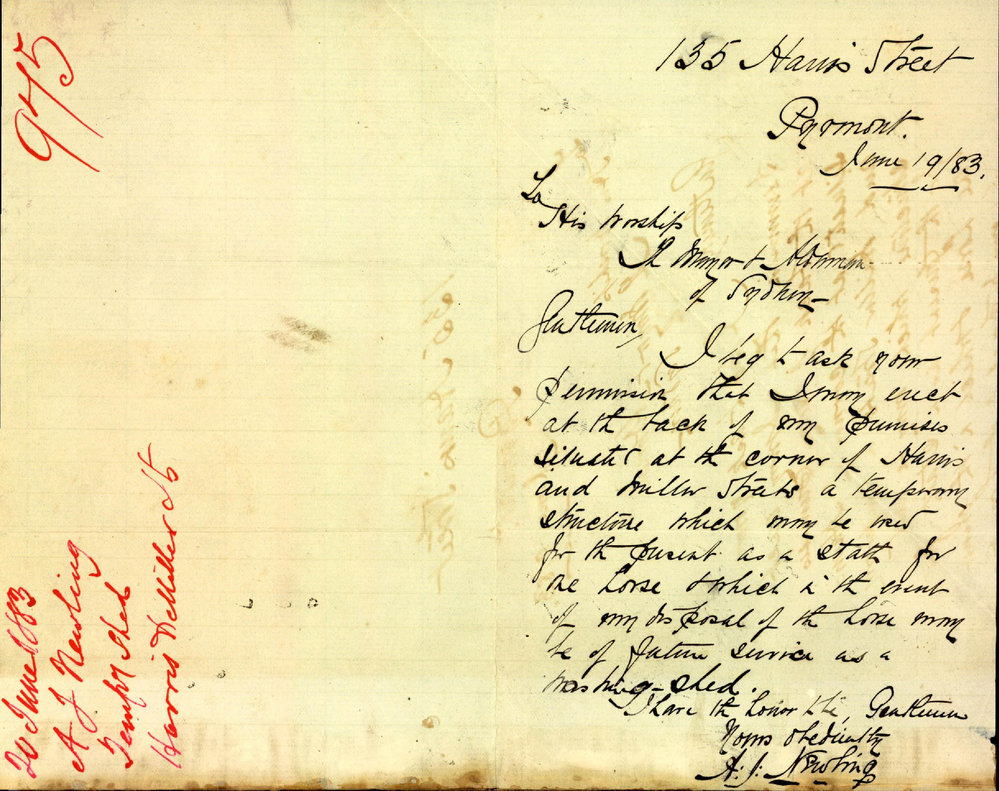 135 Harris Street
Pyrmont.
June 19/83.
To
His Worship
The Mayor & Aldermen
of Sydney
Gentlemen,
I beg to ask your
permission that I may erect
at the back of my premises
situated at the corner of Harris
and Miller Streets a temporary
structure which may be used
for the present as a stall for
one horse & which in the event
of my disposal of the horse may
be of future service as a
washing-shed.
I have the honor to be, Gentlemen
Yours obediently
A. J. Newling
945
20 June 1883
A J Newling
Tempy Shed
Harris & Miller Sts